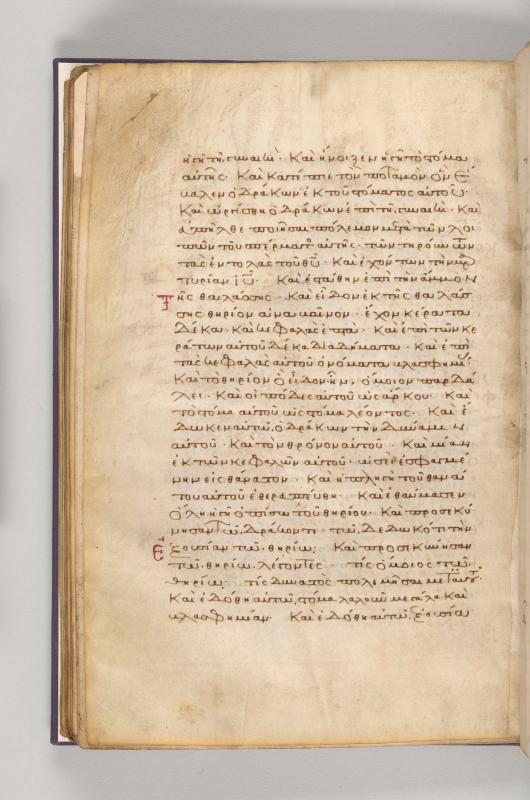 ἡ γῆ τῇ γυναικί· Καὶ ἤνοιξεν ἡ γῆ τὸ στόμα
αὐτῆς· Καὶ κατέπιε τὸν ποταμὸν ὃν ἔ
βαλεν ὁ δράκων ἐκ τοῦ στόματος αὐτοῦ·
Καὶ ὠργίσθη ὁ δράκων ἐπὶ τῇ γυναικί· Καὶ
ἀπῆλθε ποιῆσαι πόλεμον μετὰ τῶν λοι
πῶν τοῦ σπέρματος αὐτῆς· τῶν τηρούντων
τὰς ἐντολὰς τοῦ θυ· Καὶ ἐχόντων τὴν μαρ
τυρίαν ιυ· Καὶ ἐστάθην ἐπὶ τὴν ἄμμον
τῆς θαλάσσης· Καὶ εἶδον ἐκ τῆς θαλάσ
σης θηρίον ἀναβαῖνον· ἔχον κέρατα
δέκα· Καὶ κεφαλὰς ἑπτά· Καὶ ἐπὶ τῶν κε
ράτων αὐτοῦ δέκα διαδήματα· Καὶ ἐπὶ
τὰς κεφαλὰς αὐτοῦ ὀνόματα βλασφημίας·
Καὶ τὸ θηρίον ὃ εἶδον ἦν, ὅμοιον παρδά
λει· Καὶ οἱ πόδες αὐτοῦ ὡς ἄρκου· Καὶ
τὸ στόμα αὐτοῦ ὡς στόμα λέοντος· Καὶ ἔ
δωκεν αὐτῷ, ὁ δράκων τὴν δύναμιν
αὐτοῦ· Καὶ τὸν θρόνον αὐτοῦ· Καὶ μίαν
ἐκ τῶν κεφαλῶν αὐτοῦ· ὡσεὶ ἐσφαγμέ
νην εἰς θάνατον· Καὶ ἡ πληγὴ τοῦ θανά
του αὐτοῦ ἐθεραπεύθη· Καὶ ἐθαύμασεν
ὅλη ἡ γῆ ὀπίσω τοῦ θηρίου· Καὶ προσεκύ
νησαν τῷ, δράκοντι τῷ, δεδωκότι τὴν
ἐξουσίαν τῷ, θηρίῳ; Καὶ προσεκύνησαν
τῷ, θηρίῳ, λέγοντες τίς ὅμοιος τῷ,
θηρίῳ; τίς δυνατὸς πολεμῆσαι μετ' αὐτοῦ·
Καὶ ἐδόθη αὐτῷ, στόμα λαλοῦν μεγάλα Καὶ
βλασφημίαν· Καὶ ἐδόθη αὐτῷ, ἐξουσία